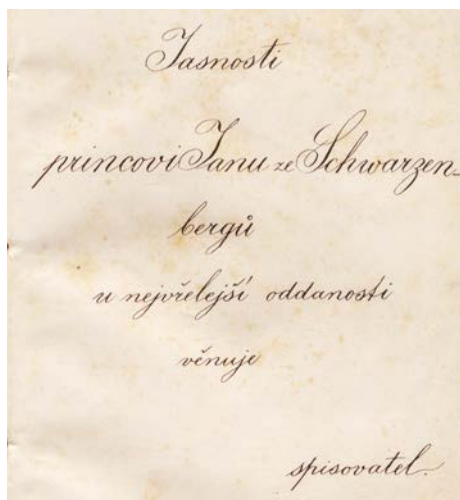 Jasnosti
princovi Janu ze Schwarzen-
bergů
u nejvřelejší oddanosti
věnuje
spisovatel.